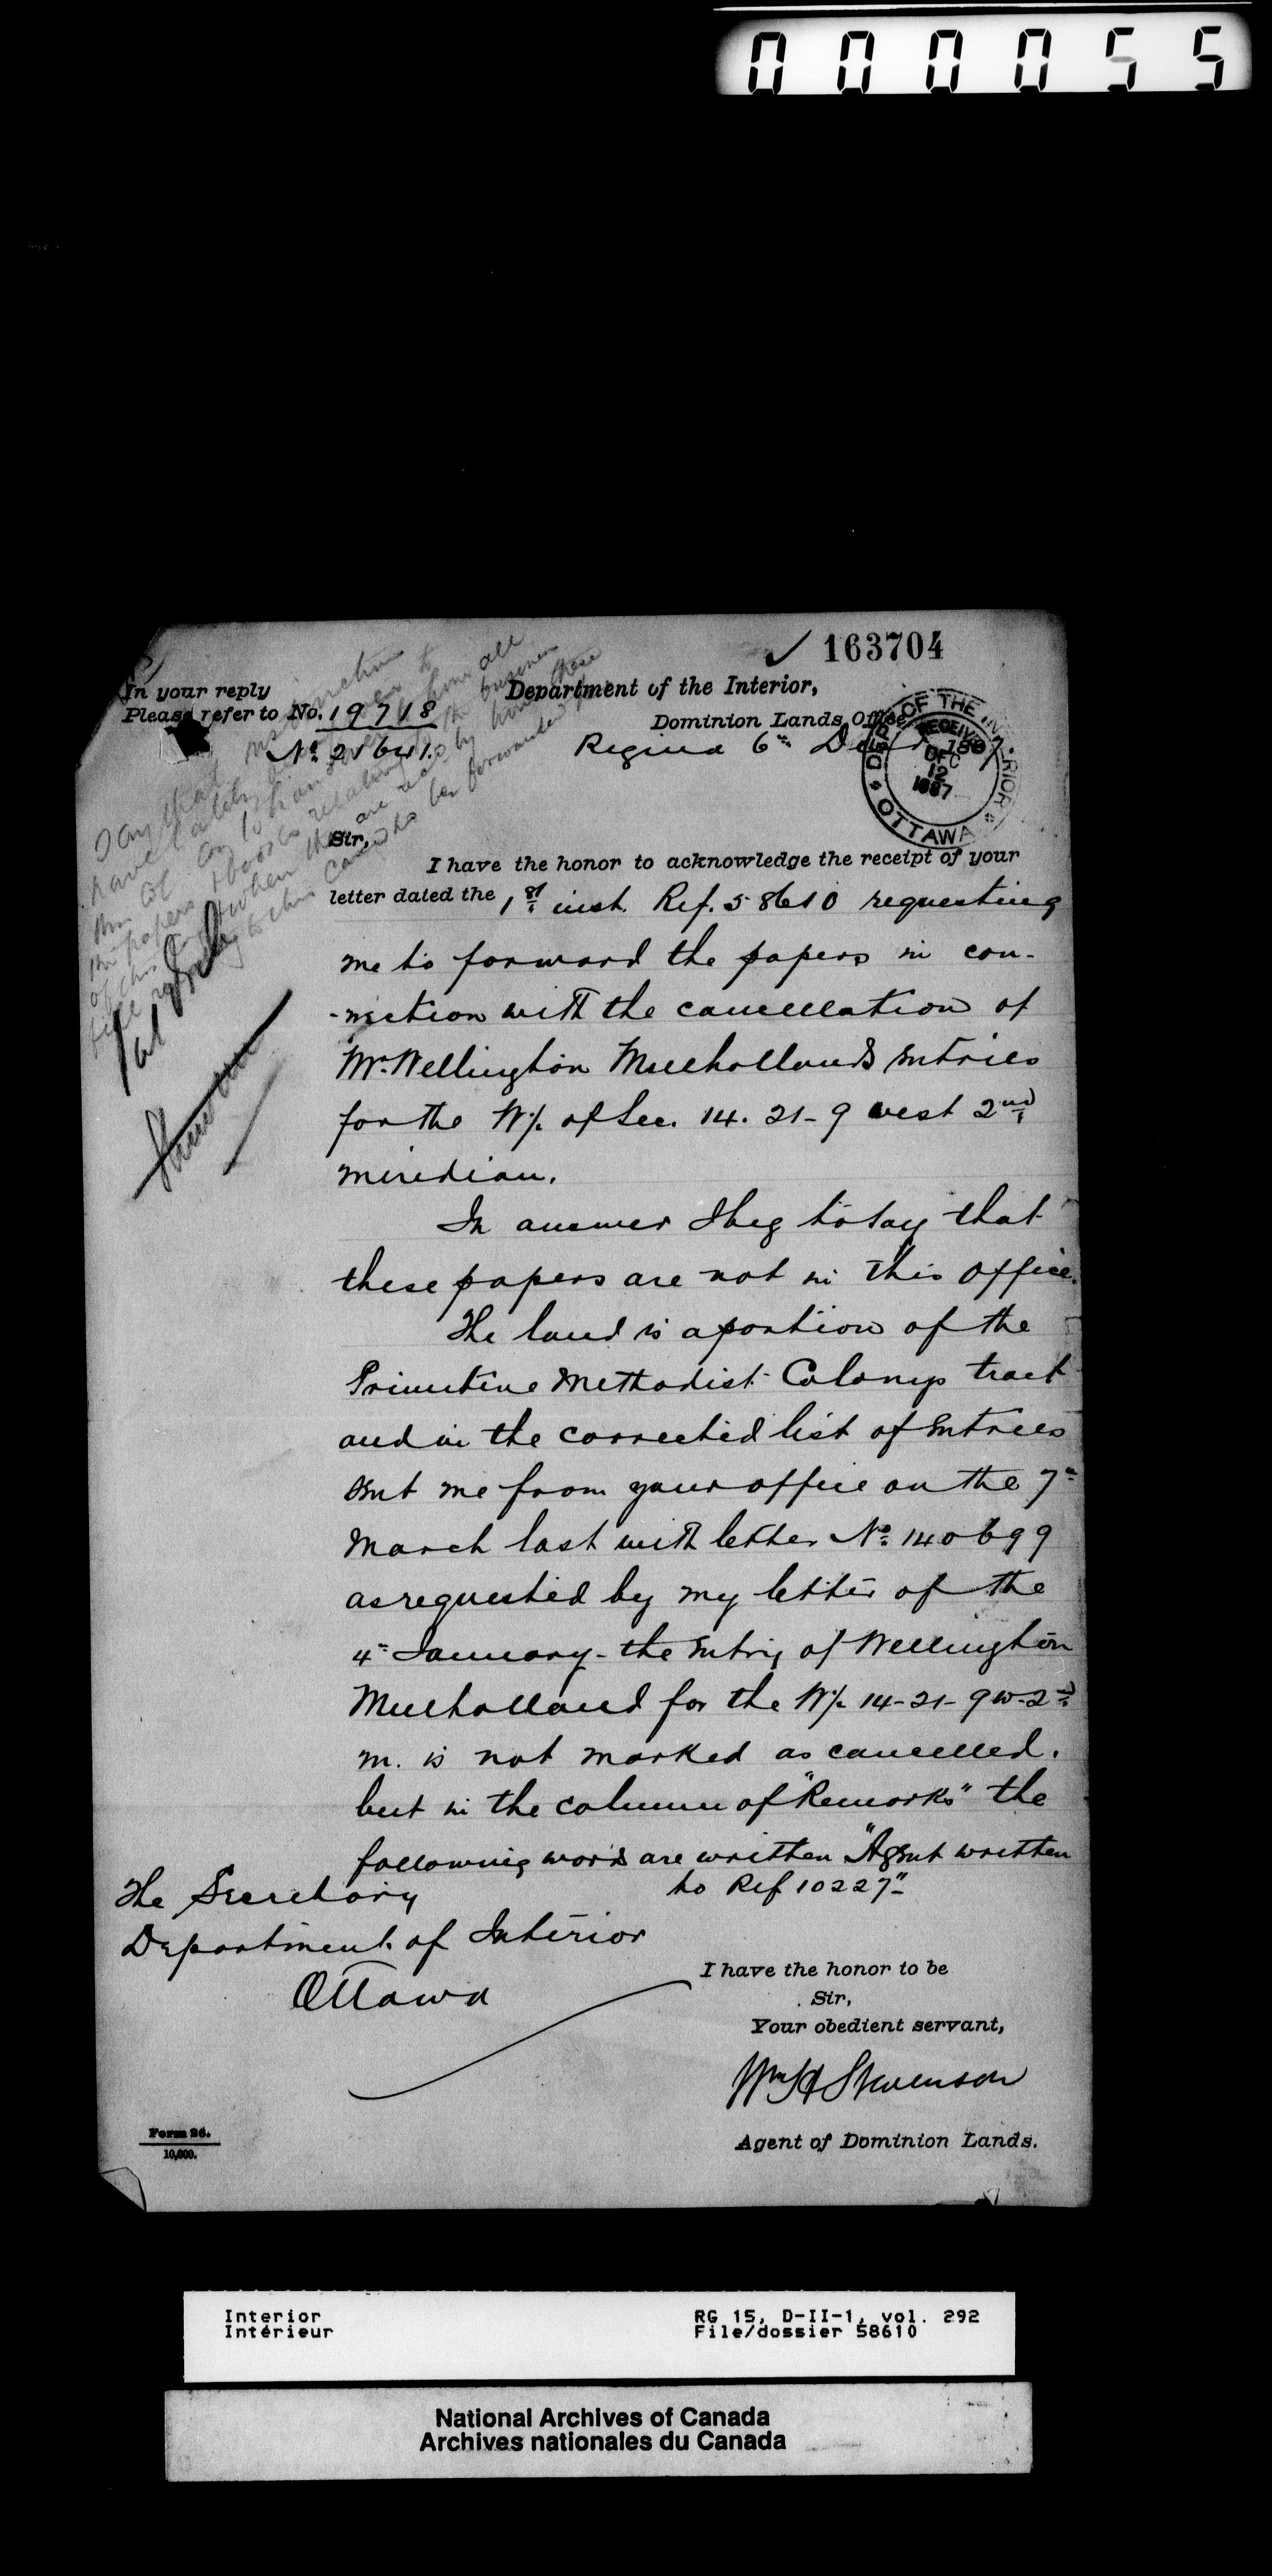 000055
✓ 163704
In your reply
Please refer to No. 19718
No. 21641.
Department of the Interior,
Dominion Lands Office,
Regina 6th Decr 1887.
DEPT. OF THE INTERIOR
RECEIVED
DEC
12
1887
OTTAWA
Sir,
I have the honor to acknowledge the receipt of your
letter dated the 1st inst. Ref. 58610 requesting
me to forward the papers in con-
-nection with the cancellation of
Mr. Wellington Mulhollands entries
for the W½ of Sec. 14. 21-9 west 2nd
meridian.
In answer I beg to say that
these papers are not in this office.
The land is a portion of the
Primitive Methodist Colony tract
and in the corrected list of Entries
sent me from your office on the 7th
March last with letter No. 140699
as requested by my letter of the
4th January - the Entry of Wellington
Mulholland for the W½ 14-21-9 w-2nd
m. is not marked as cancelled.
but in the column of "Remarks" the
following words are written "Agent written
to Ref 10227"
The Secretary
Department of Interior
Ottawa
I have the honor to be
Sir,
Your obedient servant,
Wm H Stevenson
Agent of Dominion Lands.
Form 26.
10,000.
Interior
Intérieur
RG 15, D-II-1, vol. 292
File/dossier 58610
National Archives of Canada
Archives nationales du Canada